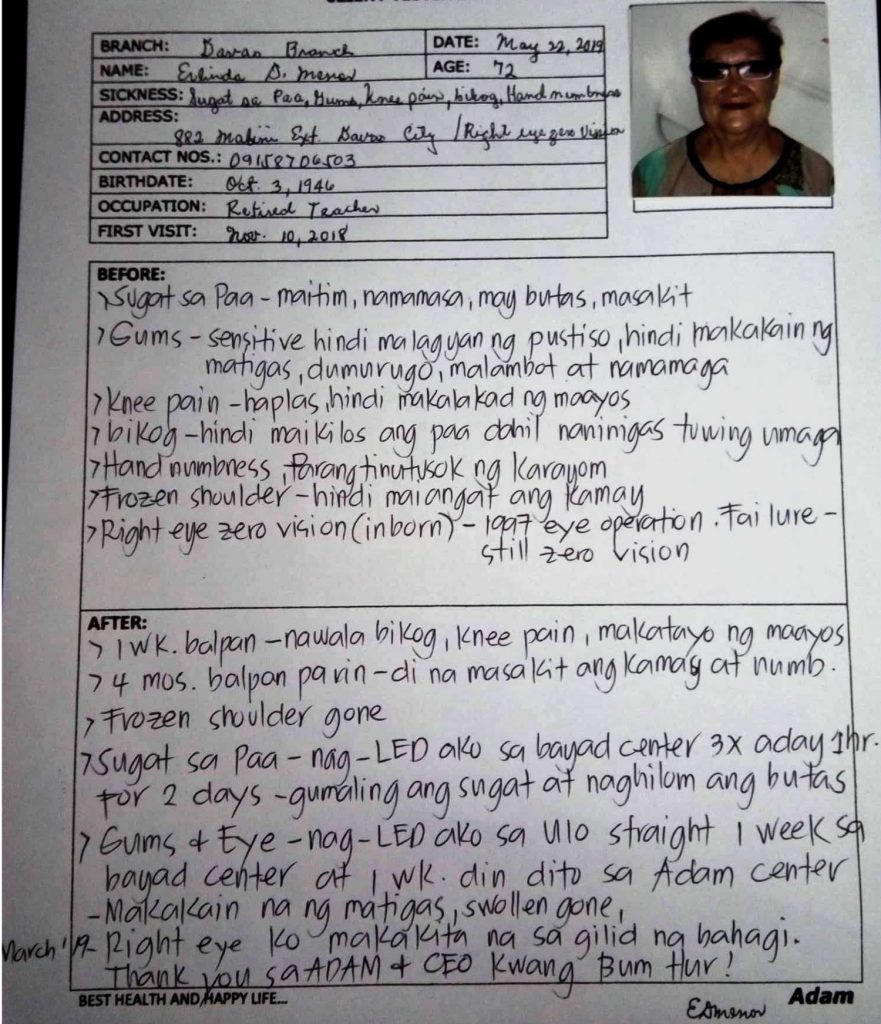 BRANCH: Davao Branch DATE: May 22, 2019
NAME: Erlinda D. AGE: 72
SICKNESS: Sugat sa Paa, Gums, Knee pain, bikog, Hand numbness
ADDRESS:
882 Mabini Ext. Davao City / Right eye zero Vision
CONTACT NOS.: 09158706503
BIRTHDATE: Oct. 3, 1946
OCCUPATION: Retired Teacher
FIRST VISIT: Nov. 10, 2018
BEFORE:
> Sugat sa Paa - maitim, namamasa, may butas, masakit
> Gums - sensitive hindi malagyan ng pustiso, hindi makakain ng
matigas, dumurugo, malambot at namamaga
> Knee pain - haplas, hindi makalakad ng maayos
> bikog - hindi maikilos ang paa dahil naninigas tuwing umaga
> Hand numbness, Parang tinutusok ng karayom
> Frozen shoulder - hindi maiangat ang kamay
> Right eye zero vision (inborn) - 1997 eye operation. Failure -
still zero vision
AFTER:
> 1 wk. balpan - nawala bikog, knee pain, makatayo ng maayos
> 4 mos. balpan pa rin - di na masakit ang kamay at numb.
> Frozen shoulder gone
> Sugat sa Paa - nag-LED ako sa bayad center 3x a day 1hr.
for 2 days - gumaling ang sugat at naghilom ang butas
> Gums & Eye - nag-LED ako sa ulo straight 1 week sa
bayad center at 1 wk. din dito sa Adam center
- Makakain na ng matigas, swollen gone,
March '19 - Right eye ko makakita na sa gilid ng bahagi.
Thank you sa ADAM & CEO Kwang Bum Hur!
BEST HEALTH AND HAPPY LIFE... Adam